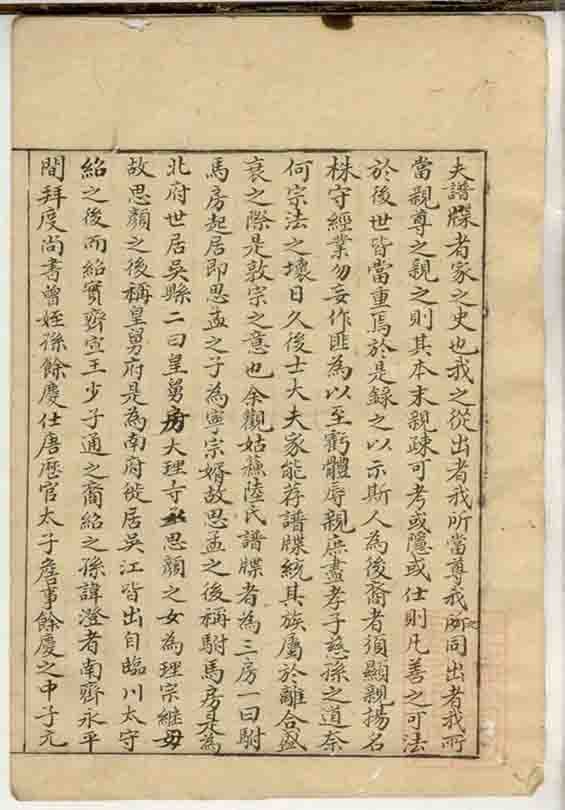 夫譜牒者家之史也我之從出者我所當尊我所同出者我所
當親尊之親之則其本末親疎可考或隱或仕則凡善之可法
於後世皆當重焉於是録之以示斯人為後裔者須顯親揚名
株守經業勿妄作匪為以至虧體辱親庶盡孝子慈孫之道奈
何宗法之壞日久後士大夫家能存譜牒統其族屬於離合盛
衰之際是敦宗之意也余觀姑蘓陸氏譜牒者為三房一曰駙
馬房起居即思孟之子為寧宗婿故思孟之後稱駙馬房是為
北府世居吳縣二曰皇舅房大理寺丞思顔之女為理宗繼母
故思顔之後稱皇舅府是為南府徙居吳江皆出自臨川太守
紹之後而紹實齊宣王少子通之裔紹之孫諱澄者南齊永平
間拜度尚書曾姪孫餘慶仕唐歴官太子詹事餘慶之中子元